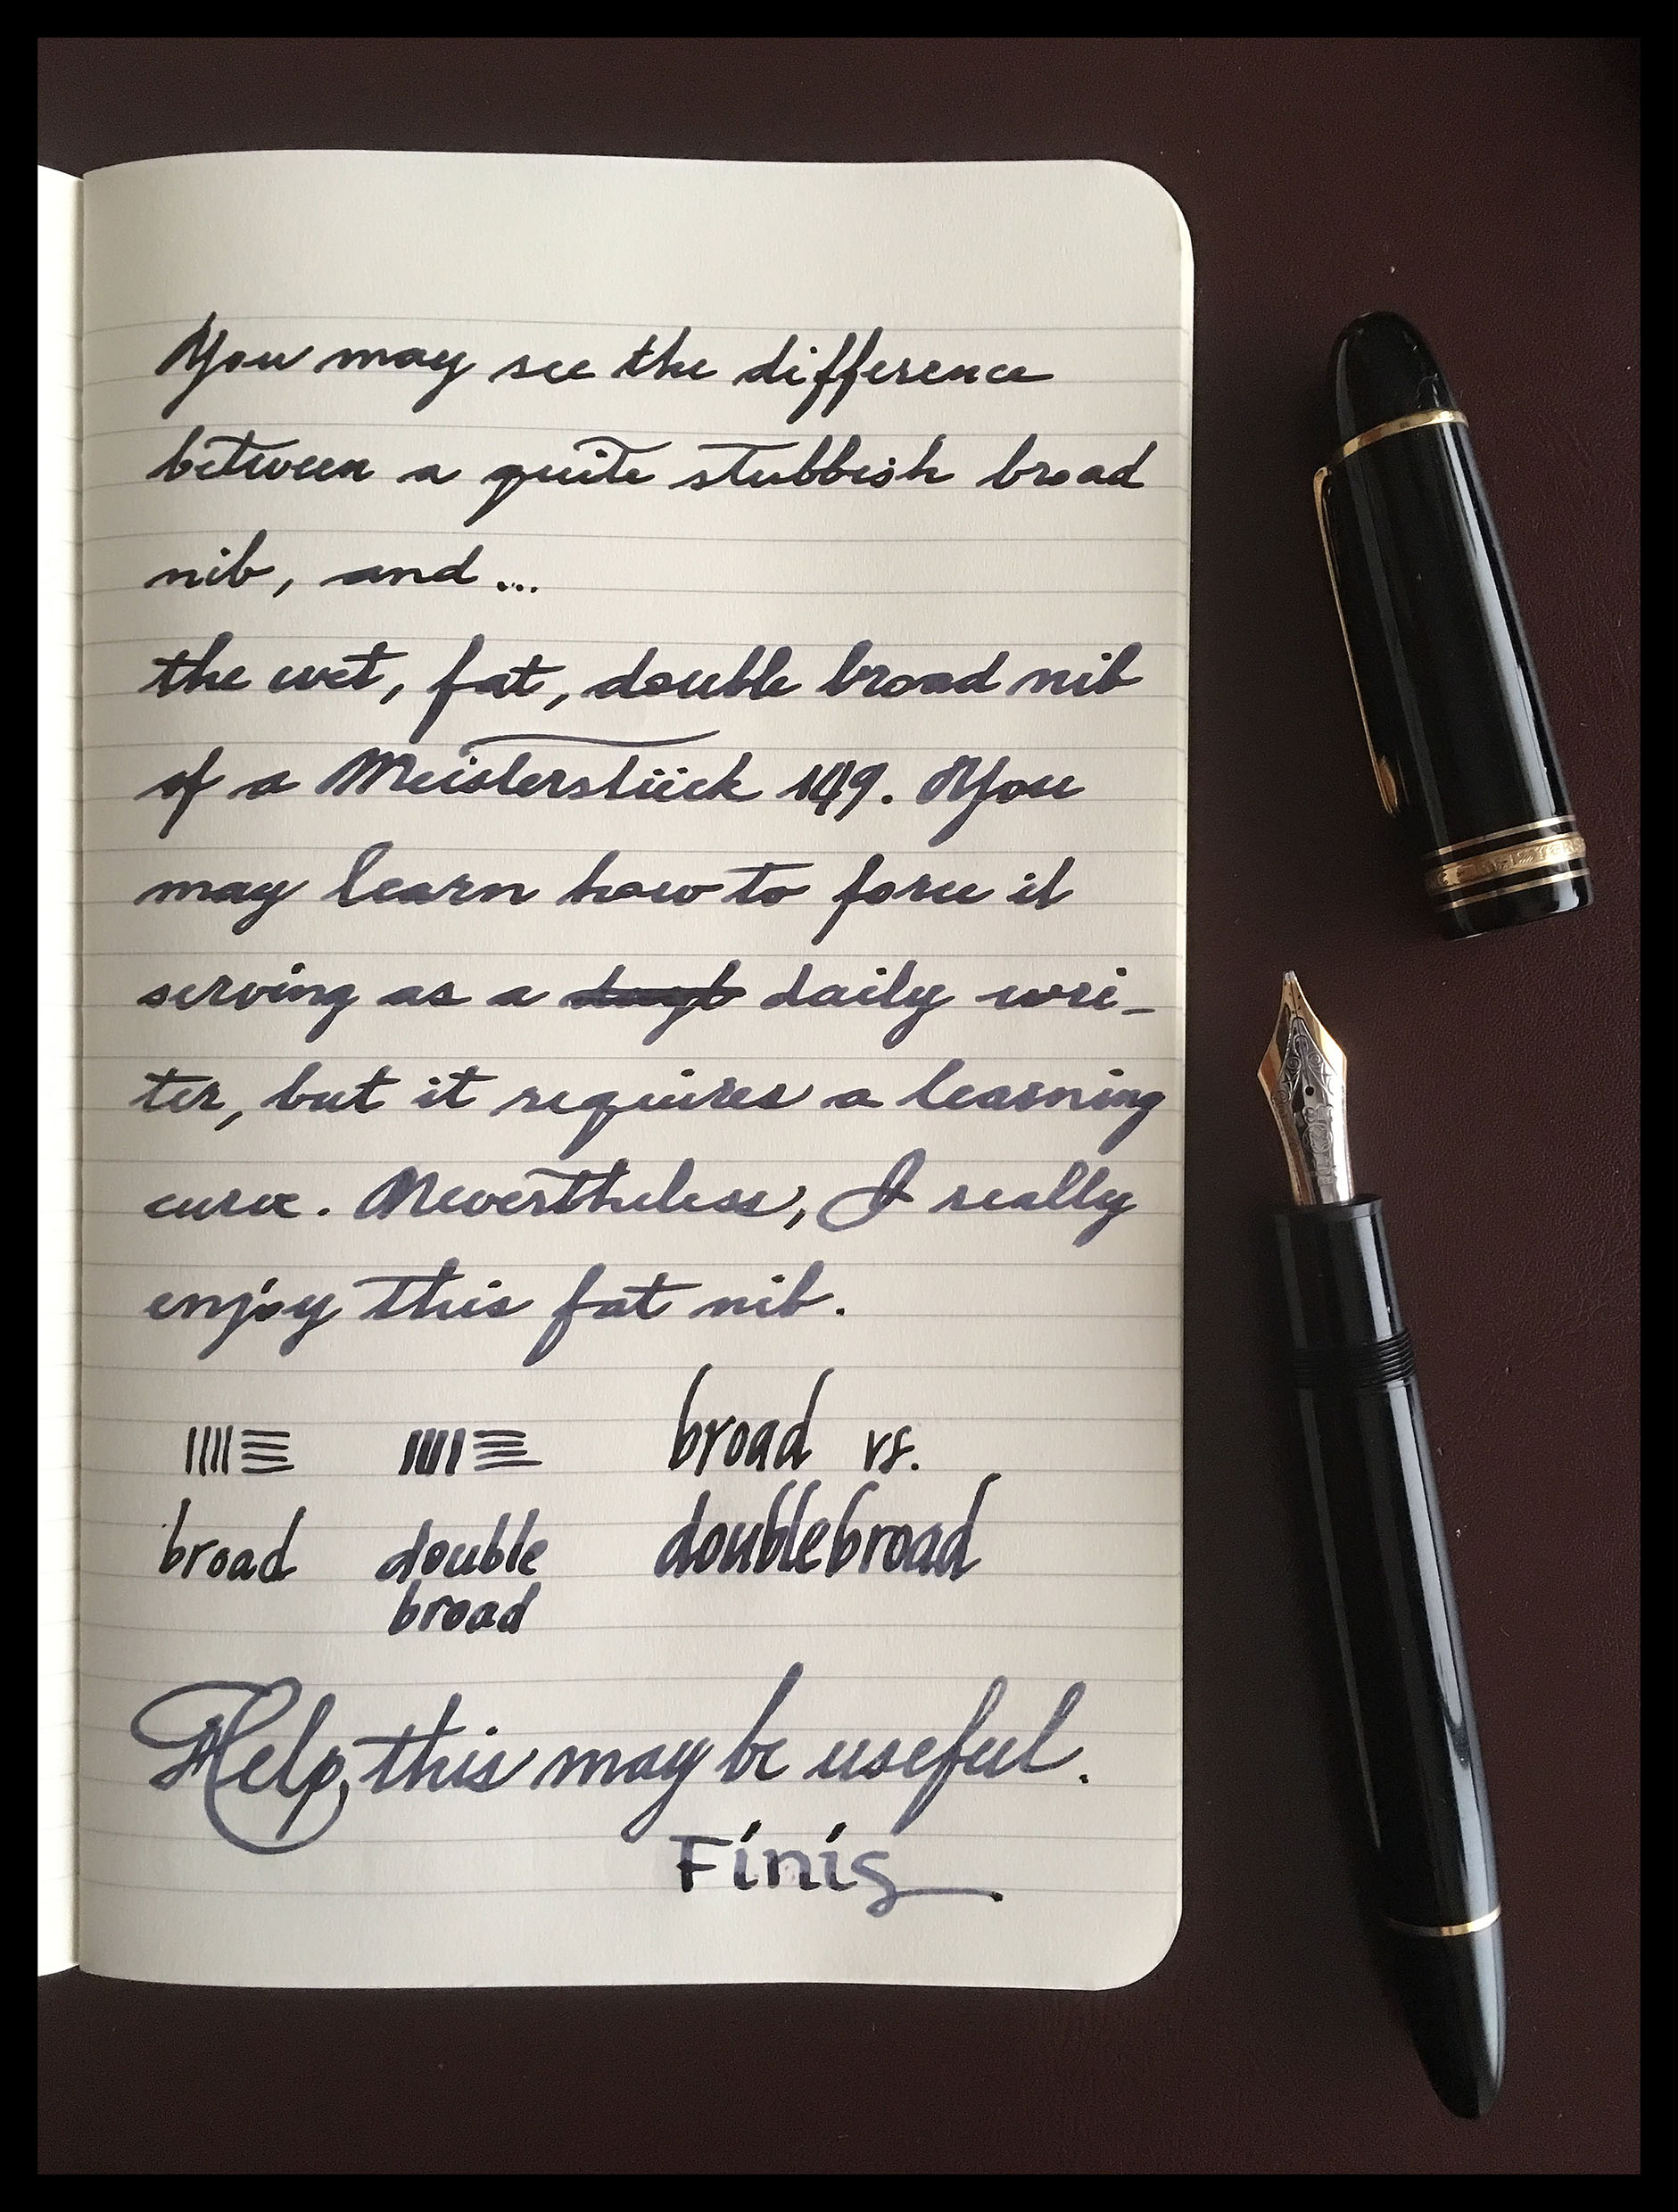 You may see the difference
between a quite stubbish broad
nib, and...
the wet, fat, double broad nib
of a Meisterstück 149. You
may learn how to force it
serving as a daily wri-
ter, but it requires a learning
curve. Nevertheless, I really
enjoy this fat nib.
broad vs.
broad double doublebroad
broad
Help, this may be useful.
Finis